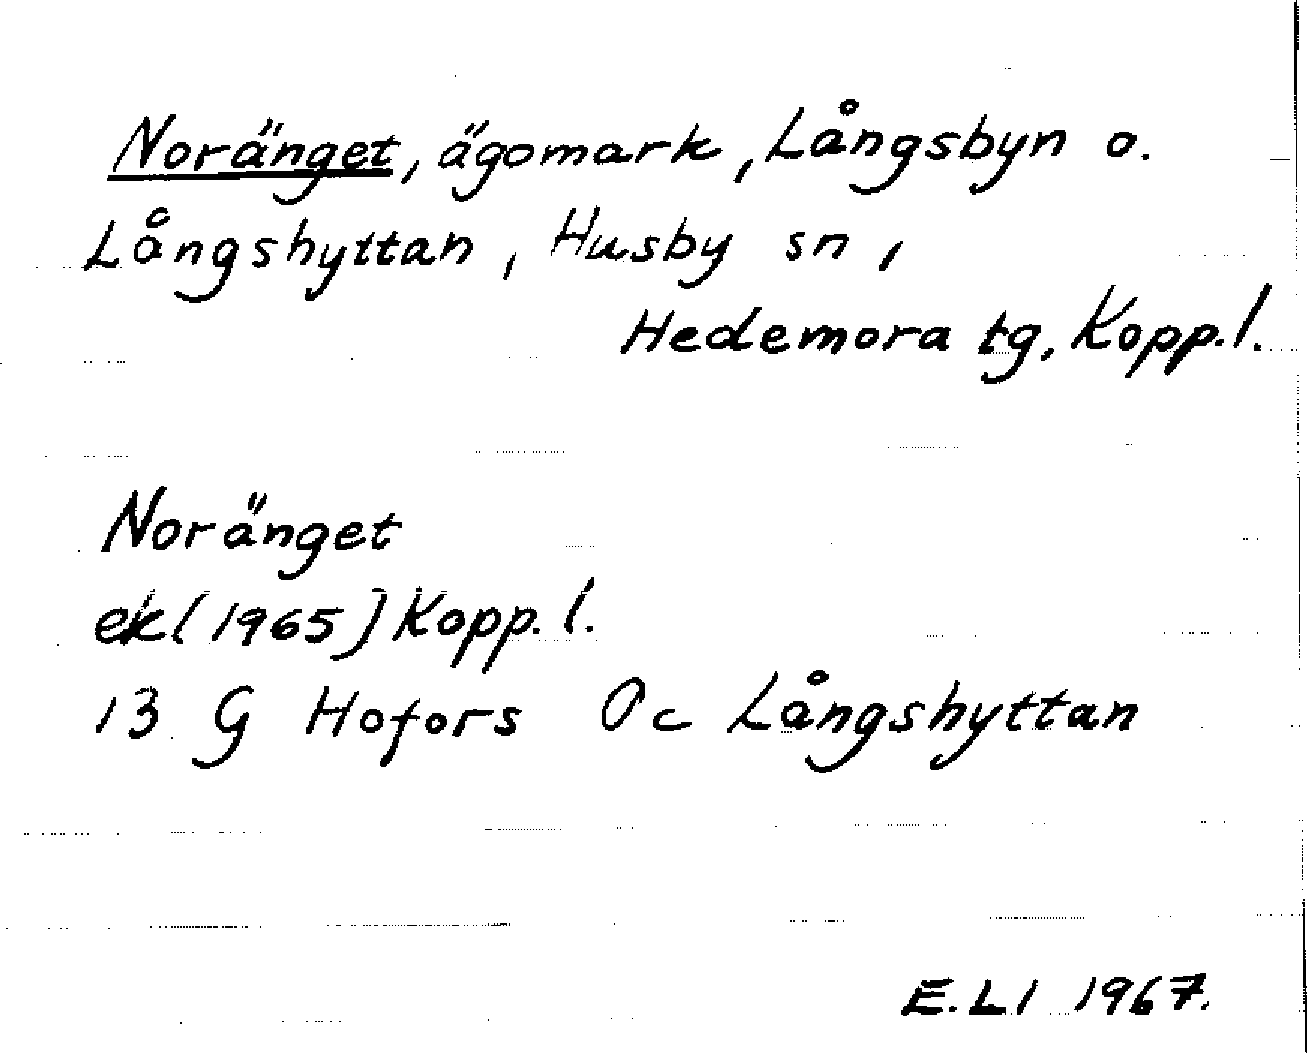 Noränget, ägomark, Långsbyn o.
Långshyttan, Husby sn,
Hedemora tg, Kopp.l.
Noränget
ek(1965) Kopp. l.
13 G Hofors Oc Långshyttan
E.L1 1967.